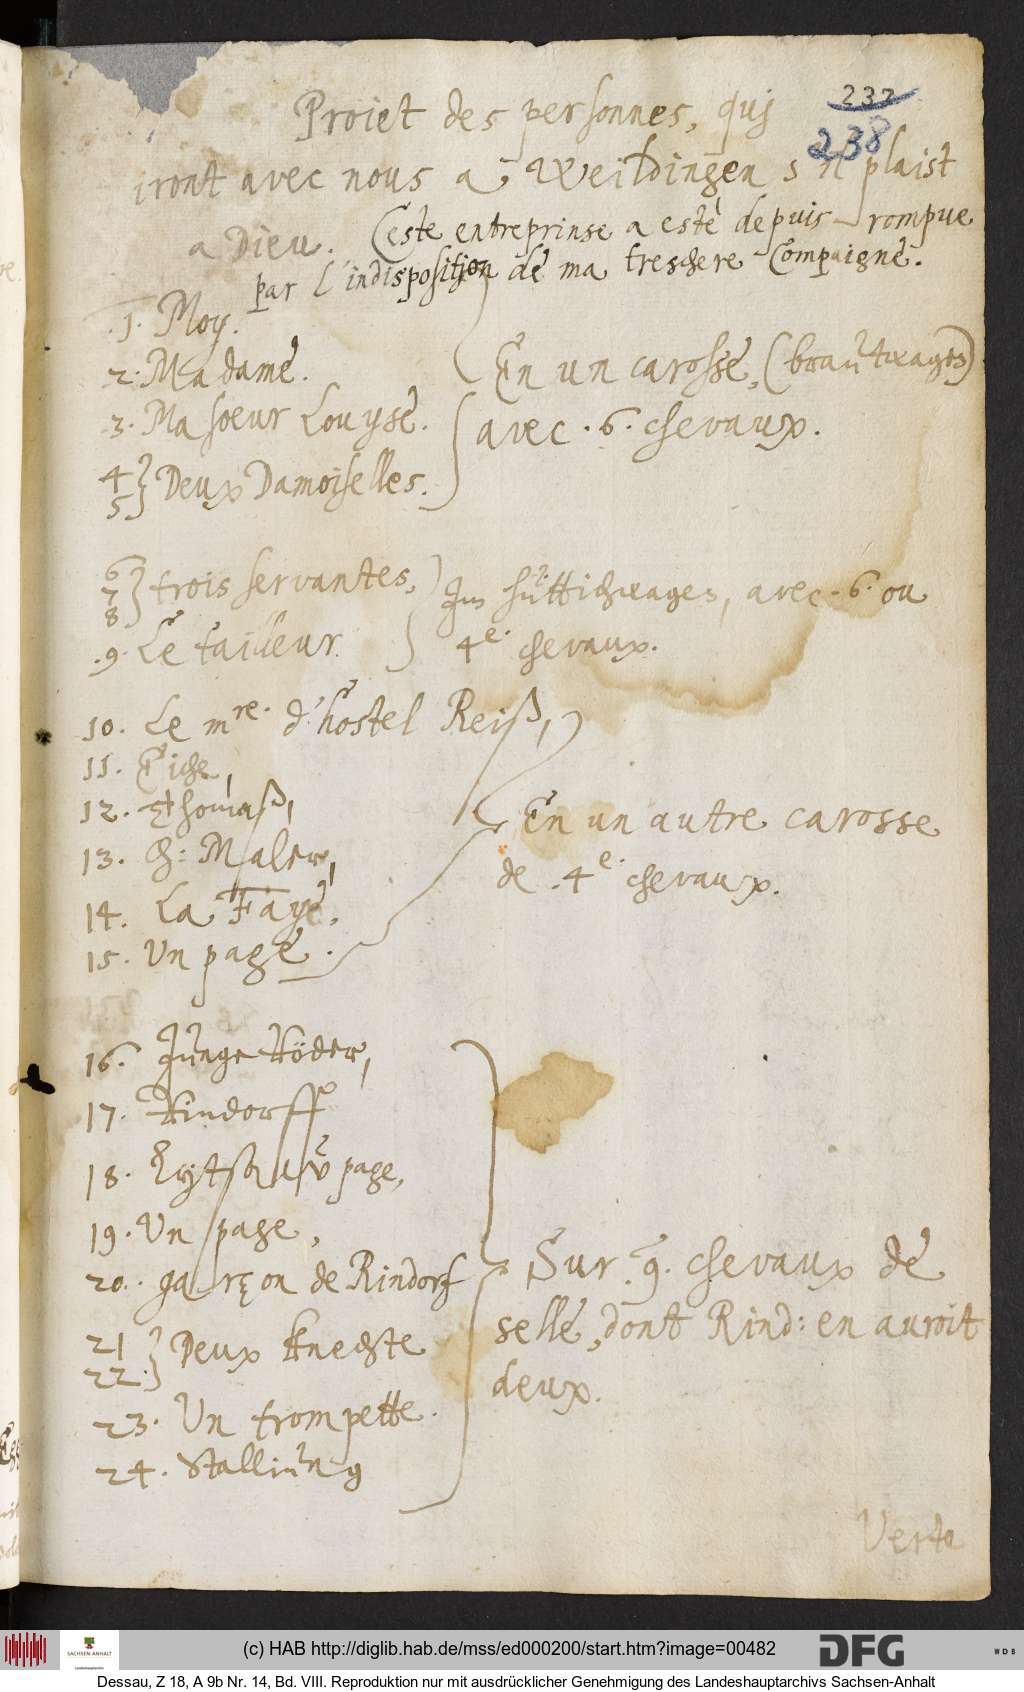 232
238
Proiet des personnes, quj
iront avec nous a Weildingen s'il plaist
a Dieu. Ceste entreprinse a esté depuis rompue
par l'indisposition de ma treschere Compaigne.
1. Moy.
2. Madame.
3. Ma soeur Louyse.
4
5 } Deux Damoiselles.
En un carosse, (brautwagen)
avec .6. chevaux.
6
7
8 } trois servantes,
.9. Le tailleur.
Im hüttschwagen, avec .6. ou
4e. chevaux.
10. Le mre. d'hostel Reiß,
11. Eiche,
12. Thomaß,
13. H: Maler,
14. La Faye,
15. Un page.
En un autre carosse
de .4e. chevaux.
16. Junge Röder,
17. Rindorff
18. page,
19. Un page,
20. garçon de Rindorf
21
22. } Deux Knechte
23. Un trompette.
24. Stalliung
Sur .9. chevaux de
selle, dont Rind: en auroit
deux.
Verte
(c) HAB http://diglib.hab.de/mss/ed000200/start.htm?image=00482
SACHSEN-ANHALT
Landeshauptarchiv
DFG
WDB
Dessau, Z 18, A 9b Nr. 14, Bd. VIII. Reproduktion nur mit ausdrücklicher Genehmigung des Landeshauptarchivs Sachsen-Anhalt